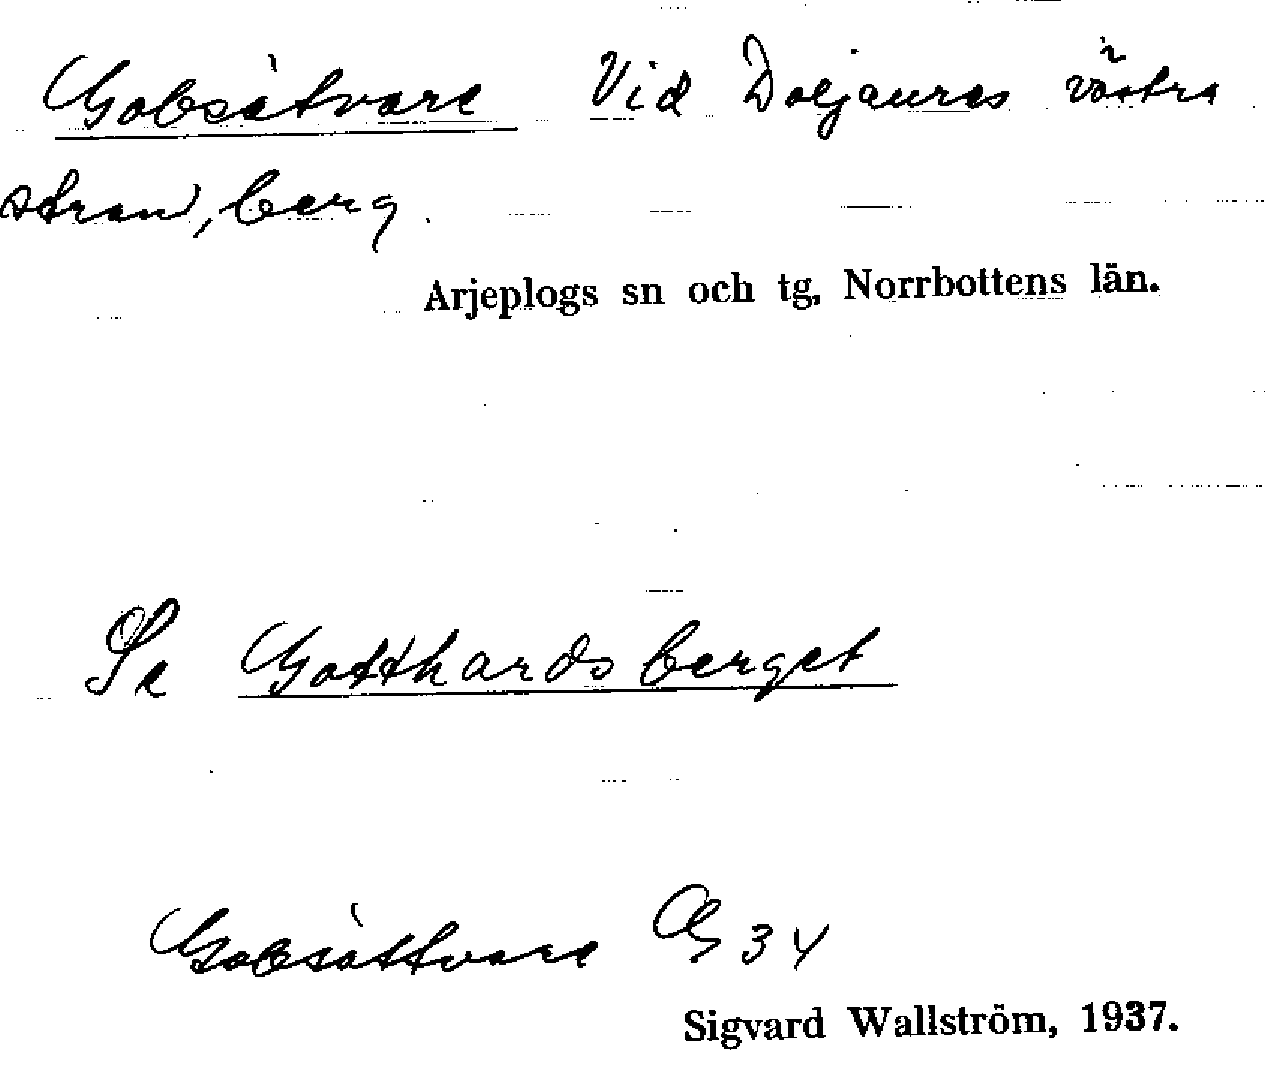 Gobsåtvare Vid Doljaures västra
stran, berg.
Arjeplogs sn och tg, Norrbottens län.
Se Gotthardsberget
Gobsåttvare G 34
Sigvard Wallström, 1937.